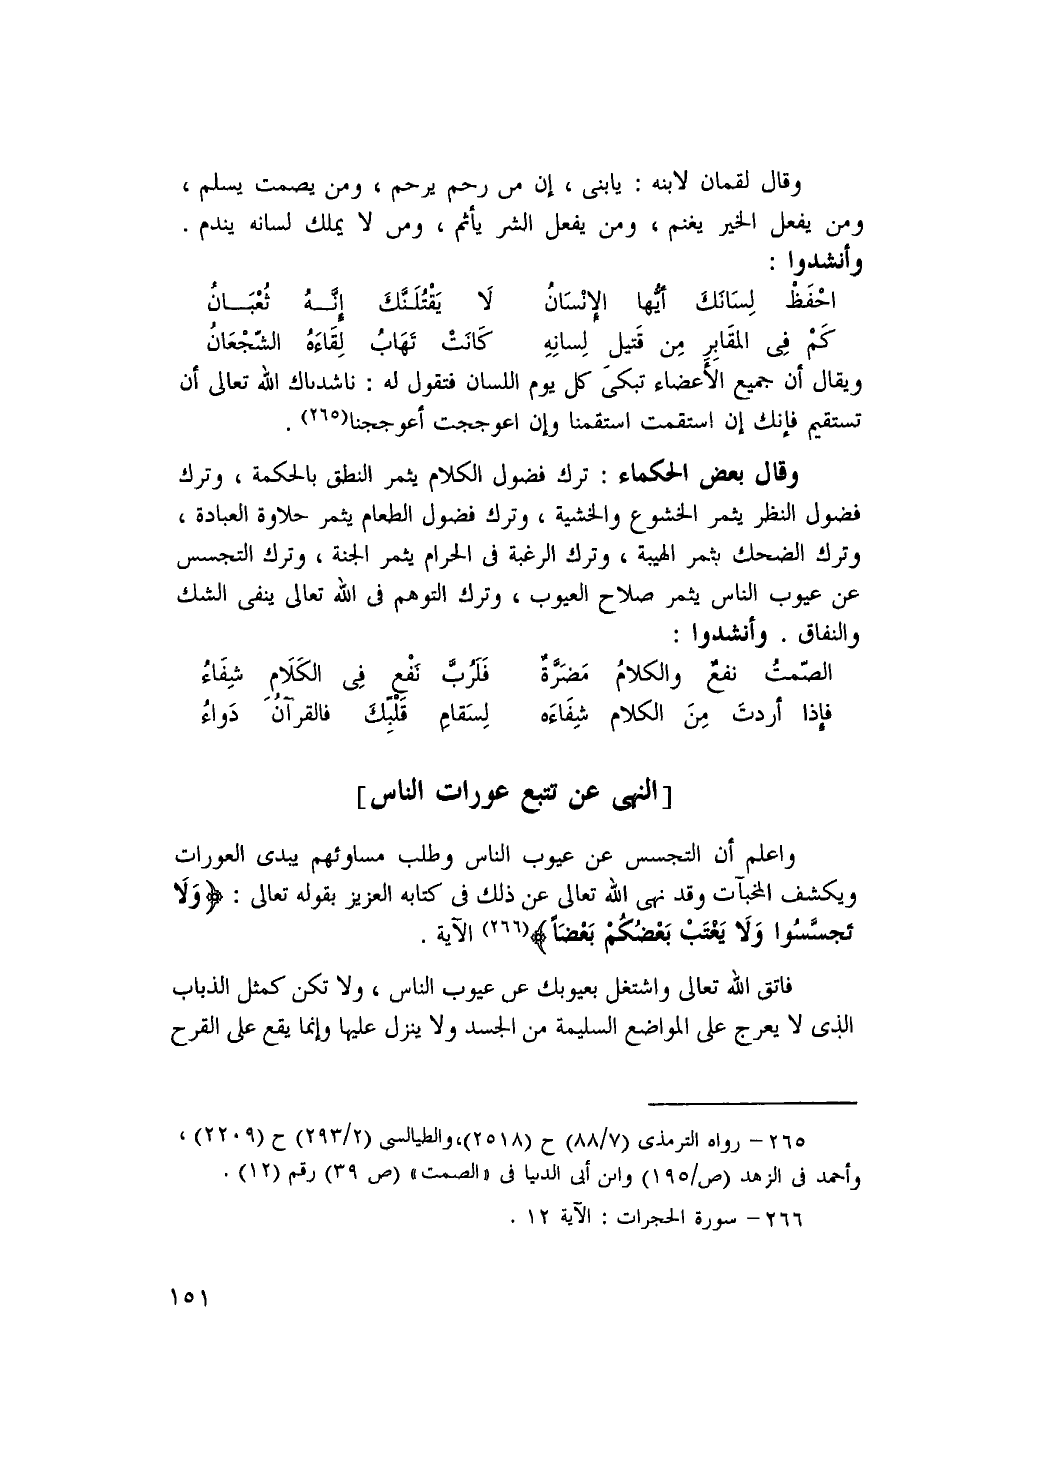 وقال لقمان لابنه : يابنى ، إن من رحم يرحم ، ومن يصمت يسلم ،
ومن يفعل الخير يغنم ، ومن يفعل الشر يأثم ، ومن لا يملك لسانه يندم .
وأنشدوا :
احْفَظْ لِسَانَكَ أيُّها الإنْسَانُ لَا يَقْتُلَـنَّكَ إنَّـــهُ ثُعْبَــــانُ
كَمْ فِى المقَابِرِ مِن قَتيل لِسانِهِ كَانَتْ تَهَابُ لِقَاءَهُ الشّجْعَانُ
ويقال أن جميع الأعضاء تبكى كل يوم اللسان فتقول له : ناشدناك الله تعالى أن
تستقيم فإنك إن استقمت استقمنا وإن اعوججت أعوججنا(٢٦٥) .
وقال بعض الحكماء : ترك فضول الكلام يثمر النطق بالحكمة ، وترك
فضول النظر يثمر الخشوع والخشية ، وترك فضول الطعام يثمر حلاوة العبادة ،
وترك الضحك يثمر الهيبة ، وترك الرغبة فى الحرام يثمر الجنة ، وترك التجسس
عن عيوب الناس يثمر صلاح العيوب ، وترك التوهم فى الله تعالى ينفى الشك
والنفاق . وأنشدوا :
الصّمتُ نفعٌ والكلامُ مَضَرَّةٌ فَلَرُبَّ نَفْعٍ فِى الكَلَامِ شِفَاءُ
فإذا أردتَ مِنَ الكلام شِفَاءَه لِسَقامِ قَلْبِّكَ فالقرآنُ دَواءُ
[النهى عن تتبع عورات الناس]
واعلم أن التجسس عن عيوب الناس وطلب مساوئهم يبدى العورات
ويكشف المخبآت وقد نهى الله تعالى عن ذلك فى كتابه العزيز بقوله تعالى : ﴿وَلَا
تَجسَّسُوا وَلَا يَغْتَبْ بَعْضُكُمْ بَعْضَاً﴾(٢٦٦) الآية .
فاتق الله تعالى واشتغل بعيوبك عن عيوب الناس ، ولا تكن كمثل الذباب
الذى لا يعرج على المواضع السليمة من الجسد ولا ينزل عليها وإنما يقع على القرح
٢٦٥ – رواه الترمذى (٨٨/٧) ح (٢٥١٨)، والطيالسى (٢٩٣/٢) ح (٢٢٠٩) ،
وأحمد فى الزهد (ص/١٩٥) وابن أبى الدنيا فى «الصمت» (ص ٣٩) رقم (١٢) .
٢٦٦ – سورة الحجرات : الآية ١٢ .
١٥١